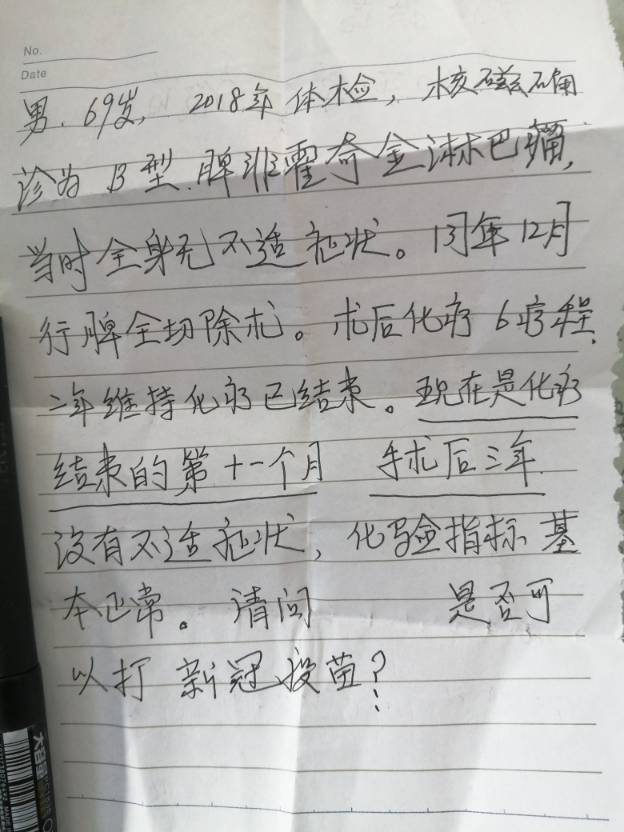 No.
Date
男. 69岁, 2018年体检, 核磁确
诊为 B型.脾非霍奇金淋巴瘤,
当时全身无不适症状。同年12月
行脾全切除术。术后化疗6疗程.
二年维持化疗已结束。现在是化疗
结束的第十一个月 手术后三年.
没有不适症状, 化验指标基
本正常。请问 是否可
以打新冠疫苗?